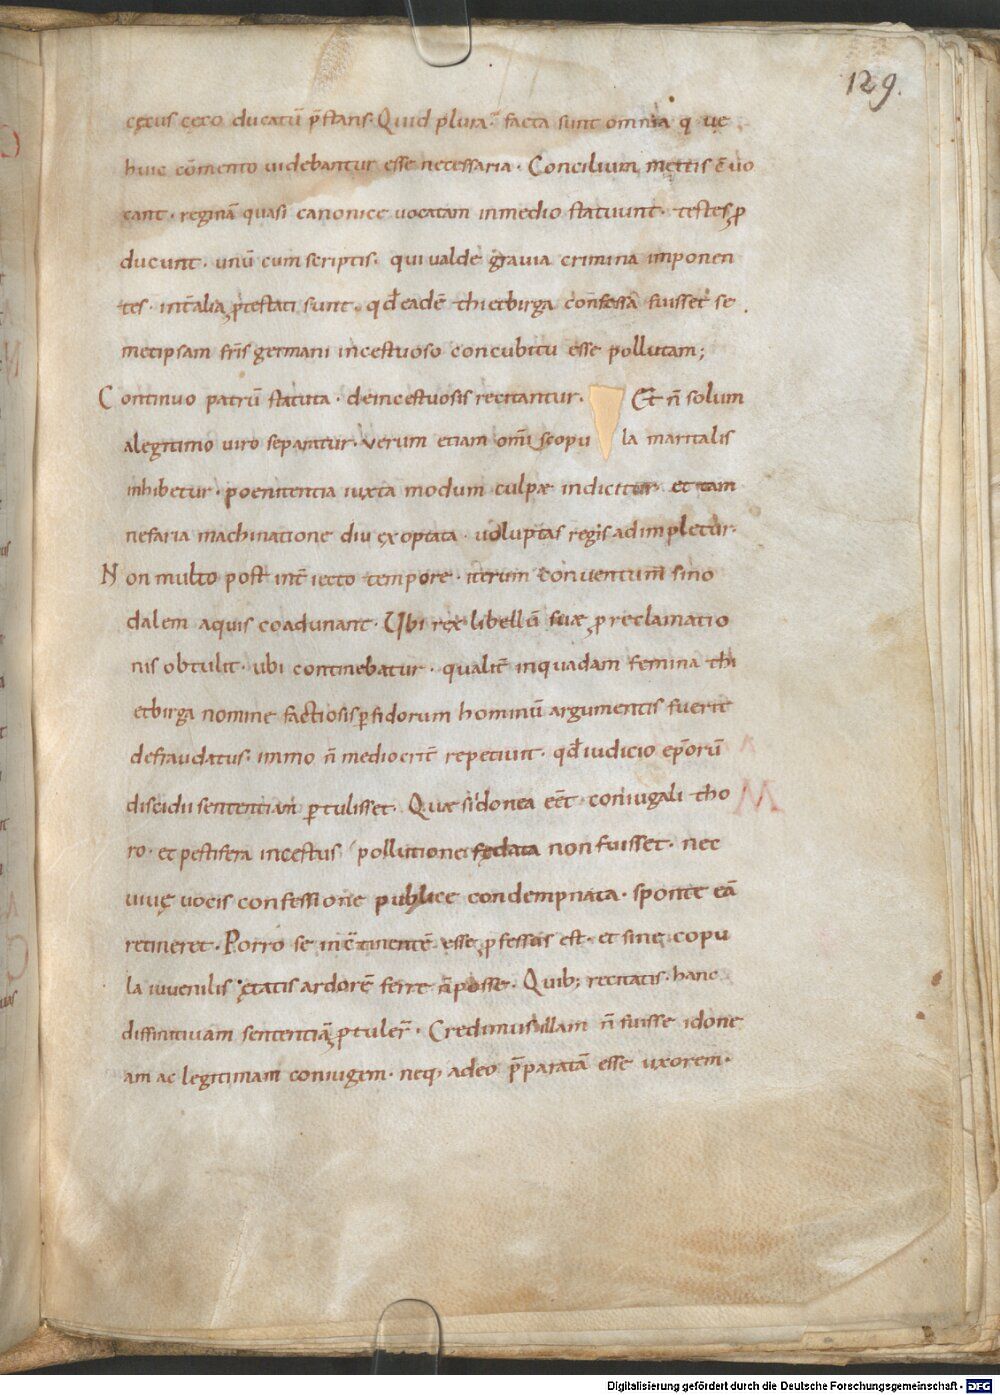 129.
cęcus cęco ducatū p̄stans. Quid plura? facta sunt omnia q̨ uę
huic cōmento uidebantur esse necessaria. Concilium mettis c̄uo
cant. reginā quasi canonice uocatam inmedio statuunt. testes ꝓ
ducunt. unū cum scriptis. qui ualde grauia crimina imponen
tes. int̄ alia ꝓtestati sunt. qđ eadē thietbirga confessa fuisset se
metipsam fr̄is germani incestuoso concubitu esse pollutam;
Continuo patrū statuta. deincestuosis recitantur. Et n̄ solum
alegitimo uiro separatur. verum etiam om̄i scopu la maritalis
inhibetur. poenitentia iuxta modum culpæ indicitur. et tam
nefaria machinatione diu exoptata. uoluptas regis adimpletur.
Non multo post int̄iecto tempore. iterum conuentum sino
dalem aquis coadunant. Ubi rex libellū suæ ꝓreclamatio
nis obtulit. ubi continebatur. qualit̄ inquadam femina thi
etbirga nomine factiosis ꝑfidorum hominū argumentis fuerit
defraudatus. immo n̄ mediocrit̄ repetiuit. qđ iudicio ep̄orū
discidii sententiam ꝑtulisset. Quæ si idonea eēt coniugali tho
ro. et pestifera incestus pollutione fędata non fuisset. nec
uiuę uocis confessione publice condempnata. sponte eā
retineret. Porro se inc̄tinentē esse ꝓfessus est. et sine copu
la iuuenilis ętatis ardorē ferre n̄ posse. Quib; recitatis. hanc
diffinitiuam sententiā ꝓtuler̄. Credimus illam n̄ fuisse idone
am ac legitimam coniugem. neq, adeo p̄paratā esse uxorem.
Digitalisierung gefördert durch die Deutsche Forschungsgemeinschaft - DFG